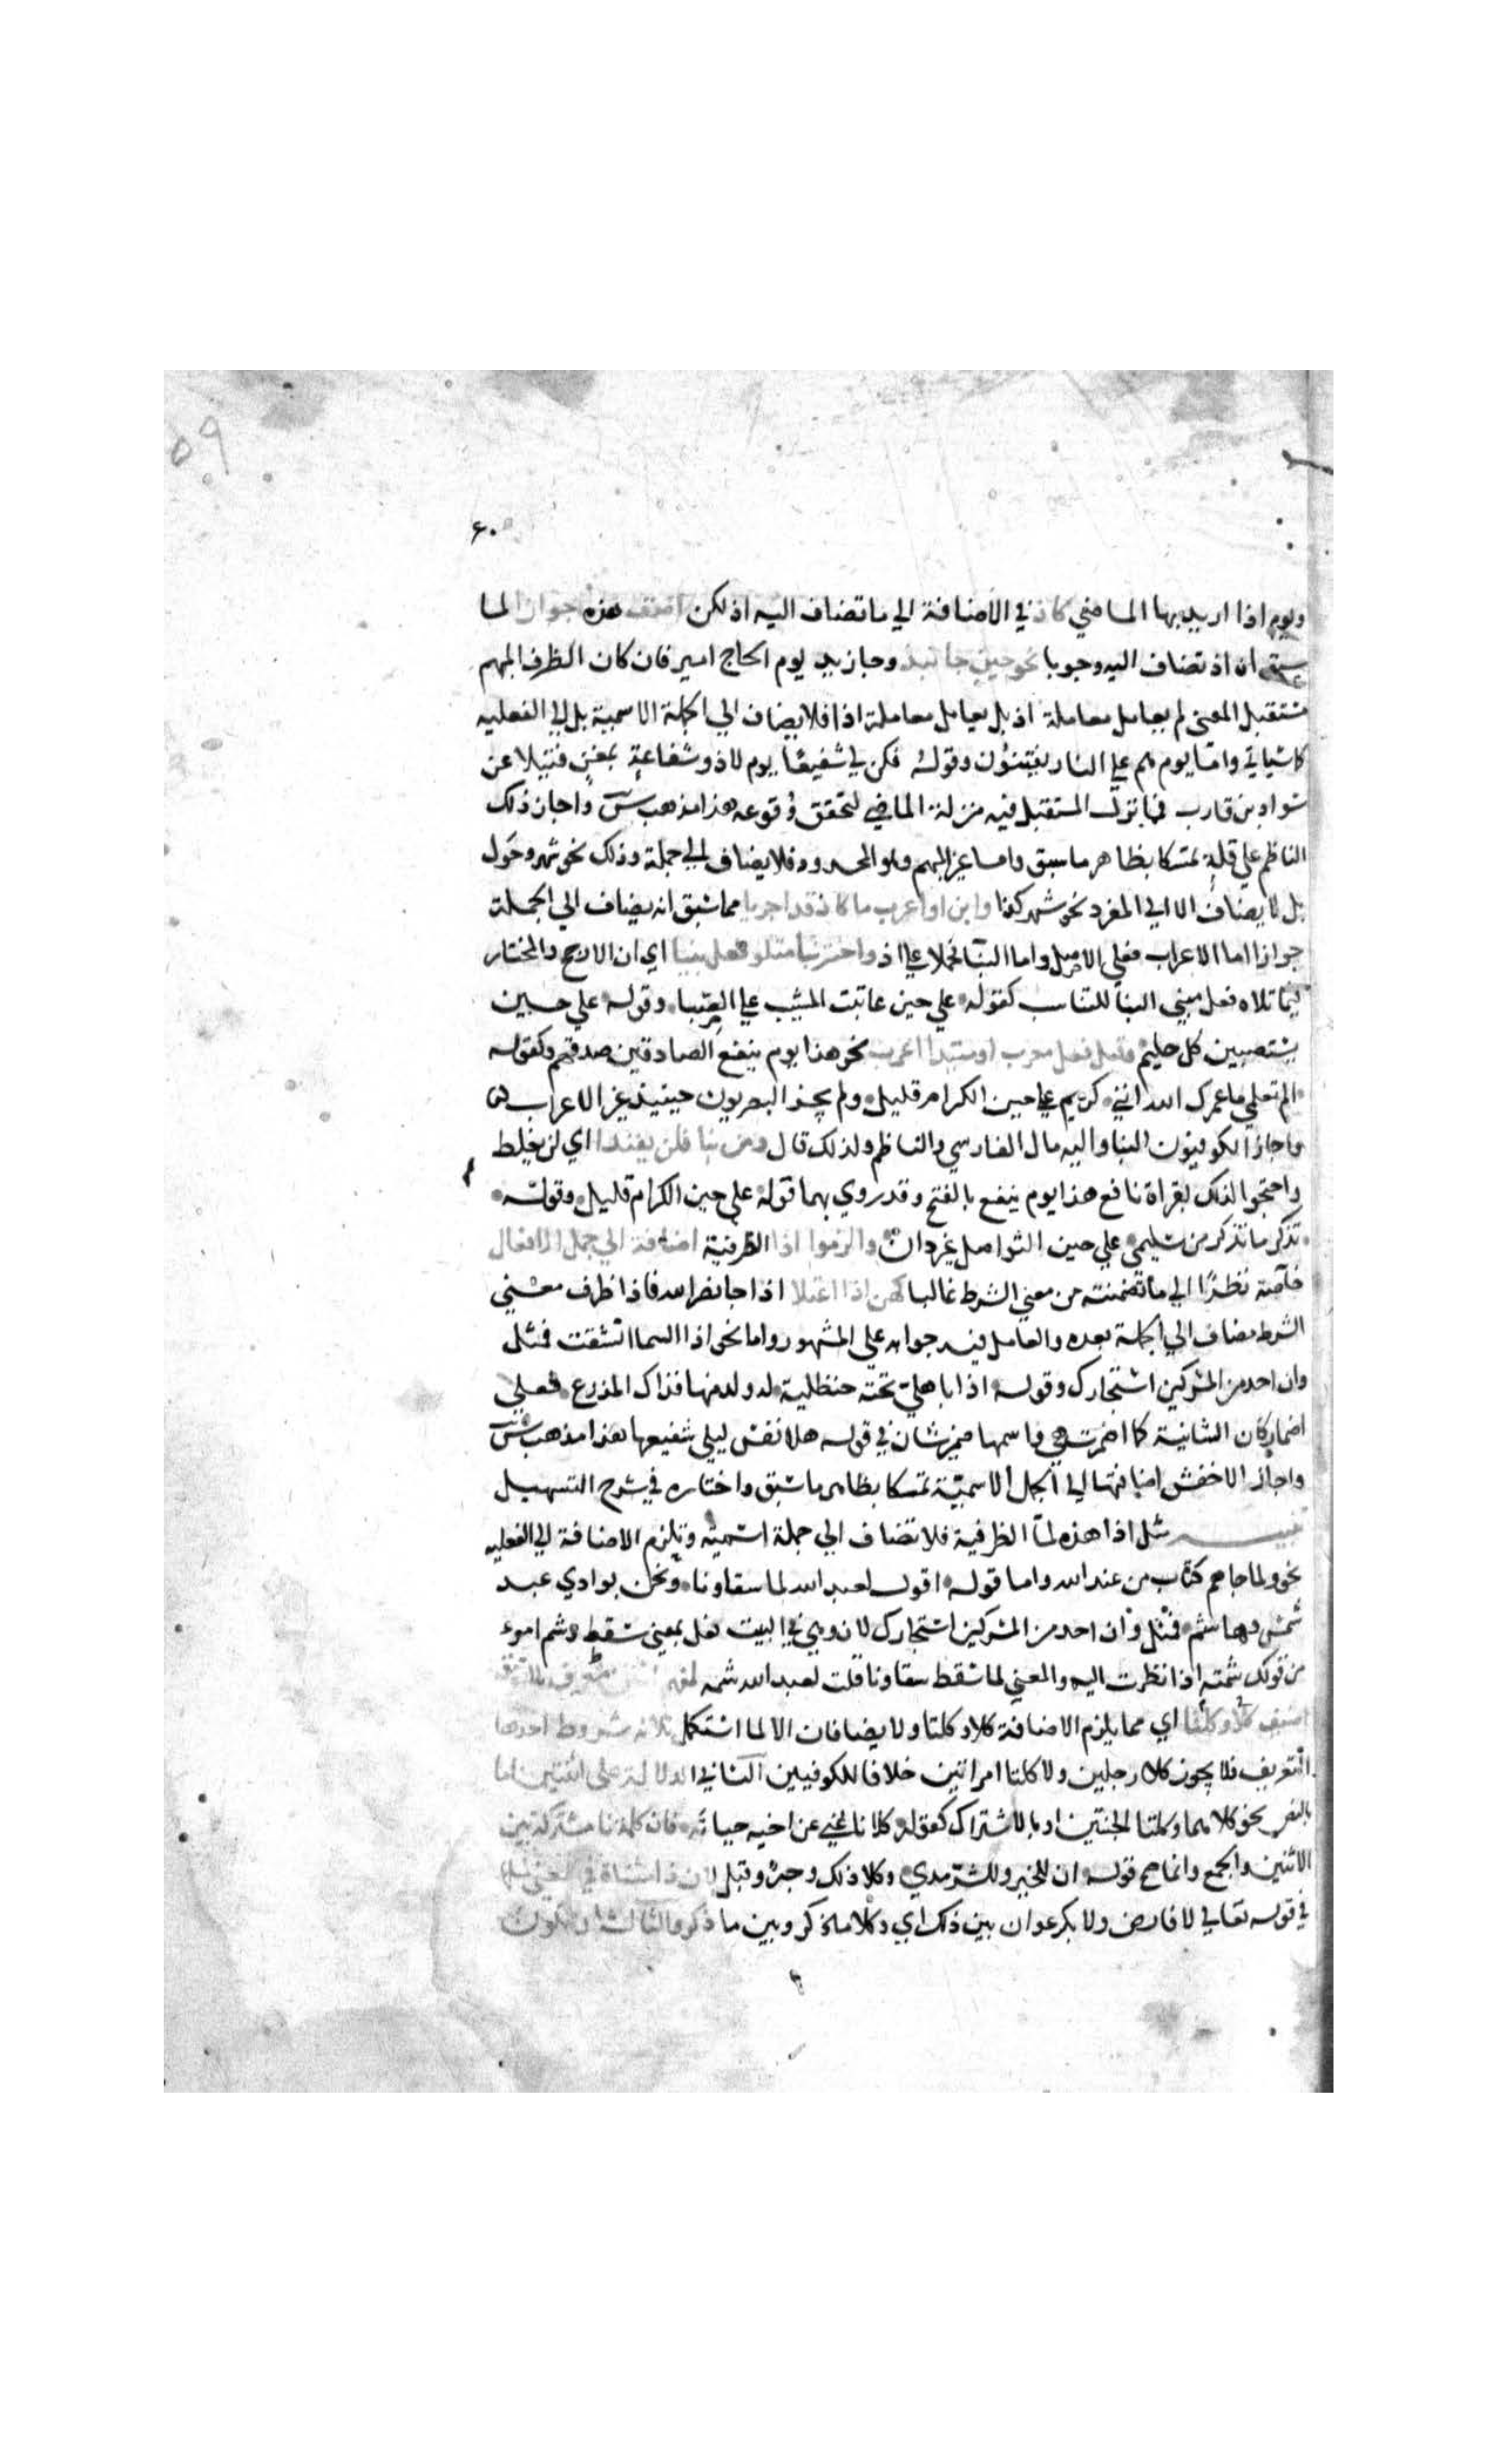 ٥٩
٦٠
ويوم اذا اريد بها الماضي كاذ في الاضافة الي ما تضاف اليه اذ لكن اضف هذه جوازا لما
سبق ان اذ تضاف اليه وجوبا نحو حين جا نبذ وجا زيد يوم الحاج امير فان كان الظرف المبهم
مستقبل المعني لم يعامل معاملة اذ بل يعامل معاملة اذا فلا يضاف الي الجملة الاسمية بل الي الفعلية
كما سياتي واما يوم هم علي النار يفتنون وقوله فكن لي شفيعا يوم لا ذو شفاعة بمغن فتيلا عن
سواد بن قارب فما نزل المستقبل فيه منزلة الماضي لتحقق وقوعه هذا مذهب س واجاز ذلك
الناظم علي قلة تمسكا بظاهر ما سبق واما غير المبهم وهو المحدود فلا يضاف الي جملة وذلك نحو شهر وحول
بل لا يضاف الا الي المفرد نحو شهر كذا وابن او اعرب ما كاذ قد اجريا مما سبق انه يضاف الي الجملة
جوازا اما الاعراب فعلي الاصل واما البنا فحملا علي اذ واختر بنا متلو فعل بنيا اي ان الارجح والمختار
فيما تلاه فعل مبني البنا للتناسب كقوله علي حين عاتبت المشيب علي الصبا وقوله علي حين
يستصبين كل حليم وقبل فعل معرب او مبتدا اعرب نحو هذا يوم ينفع الصادقين صدقهم وكقوله
الم تعلمي ما عمرك الله انني كريم علي حين الكرام قليل ولم يجز البصريون حينيذ غير الاعراب
واجاز الكوفيون البنا واليه مال الفارسي والناظم ولذلك قال ومن بنا فلن يفندا اي لن يغلط
واحتجوا لذلك بقراة نافع هذا يوم ينفع بالفتح وقد روي بهما قوله علي حين الكرام قليل وقوله
تذكر ما تذكر من سليمي علي حين التواصل غير دان والزموا اذا الظرفية اضافة الي جمل الافعال
خاصة نظرا الي ما تضمنته من معني الشرط غالبا كهن اذا اعتلا اذا جا نصر الله فاذا ظرف معني
الشرط مضاف الي الجملة بعده والعامل فيه جوابه علي المشهور واما نحو اذا السما انشقت فمثل
وان احد من المشركين استجارك وقوله اذا باهلي تحته حنظلية له ولد منها فذاك المذرع فعلي
اضمار كان الشانية كما اضمرت هي واسمها ضمير شان في قوله هلا نفس ليلي شفيعها هذا مذهب س
واجاز الاخفش اضافتها الي الجمل الاسمية تمسكا بظاهر ما سبق واختاره في شرح التسهيل
تنبيه مثل اذا هذه لما الظرفية فلا تضاف الي جملة اسمية وتلزم الاضافة الي الفعلية
نحو ولما جاهم كتاب من عند الله واما قوله اقول لعبد الله لما سقاونا ونحن بوادي عبد
شمس وهاشم فمثل وان احد من المشركين استجارك لان وهي في البيت فعل بمعني سقط وشم امر
من قولك شمته اذا نظرت اليه والمعني لما سقط سقاونا قلت لعبد الله شمه لمفهم اثنين معرف بلا تفرق
اضيف كلتا وكلا اي مما يلزم الاضافة كلا وكلتا ولا يضافان الا لما استكمل ثلاثة شروط احدها
التعريف فلا يجوز كلا رجلين ولا كلتا امراتين خلافا للكوفيين الثاني الدلالة علي اثنين اما
بالنص نحو كلاهما وكلتا الجنتين او بالاشتراك كقوله كلانا غني عن اخيه حياته فان كلمة نا مشتركة بين
الاثنين والجمع وانما صح قوله ان للخير وللشر مدي وكلا ذلك وجه وقبل لان ذا مثناة في المعني مثلها
في قوله تعالي لا فارض ولا بكر عوان بين ذلك اي وكلا ما ذكر وبين ما ذكر والثالث ان يكون